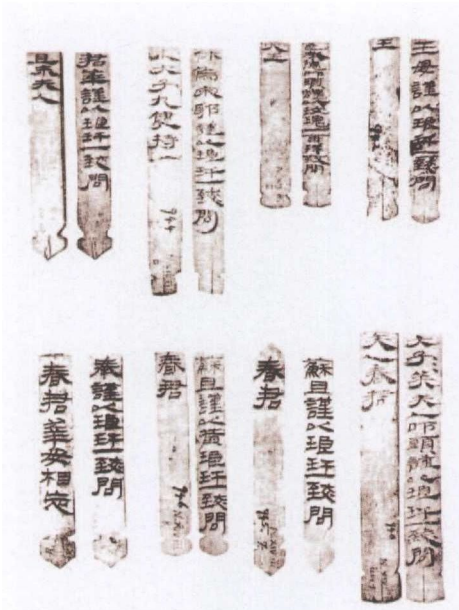 王母謹以琅玕一致問
王
臣承德叩頭謹以玫瑰一再拜致問
大王
休烏宋耶謹以琅玕一致問
小大子九健持一
君華謹以琅玕一致問
且末夫人
大子美夫人叩頭謹以琅玕一致問
夫人春君
蘇且謹以琅玕一致問
春君
蘇且謹以黃琅玕一致問
春君
奉謹以琅玕一致問
春君幸毋相忘